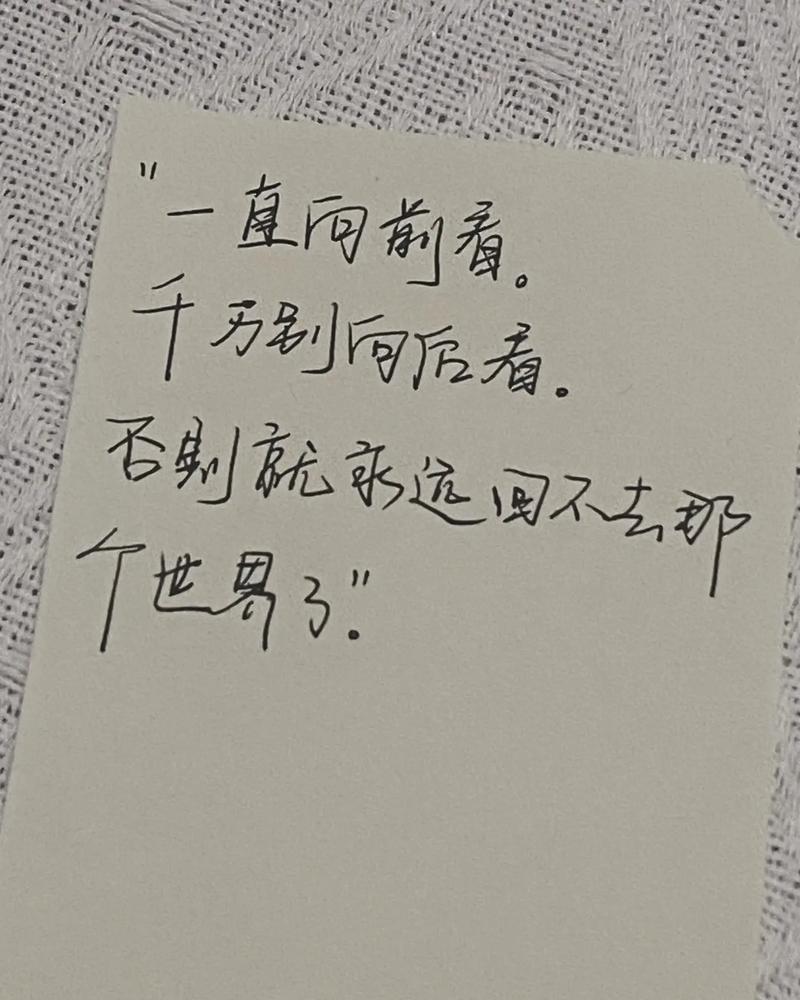 "一直向前看。
千万别向后看。
否则就永远回不去那
个世界了."